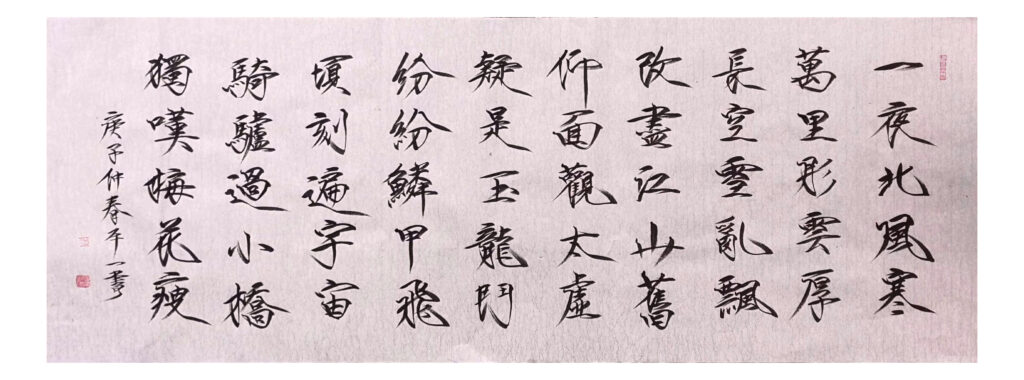 一夜北風寒
萬里彤雲厚
長空雪亂飄
改盡江山舊
仰面觀太虛
疑是玉龍鬥
紛紛鱗甲飛
頃刻遍宇宙
騎驢過小橋
獨嘆梅花瘦
庚子仲春平一書